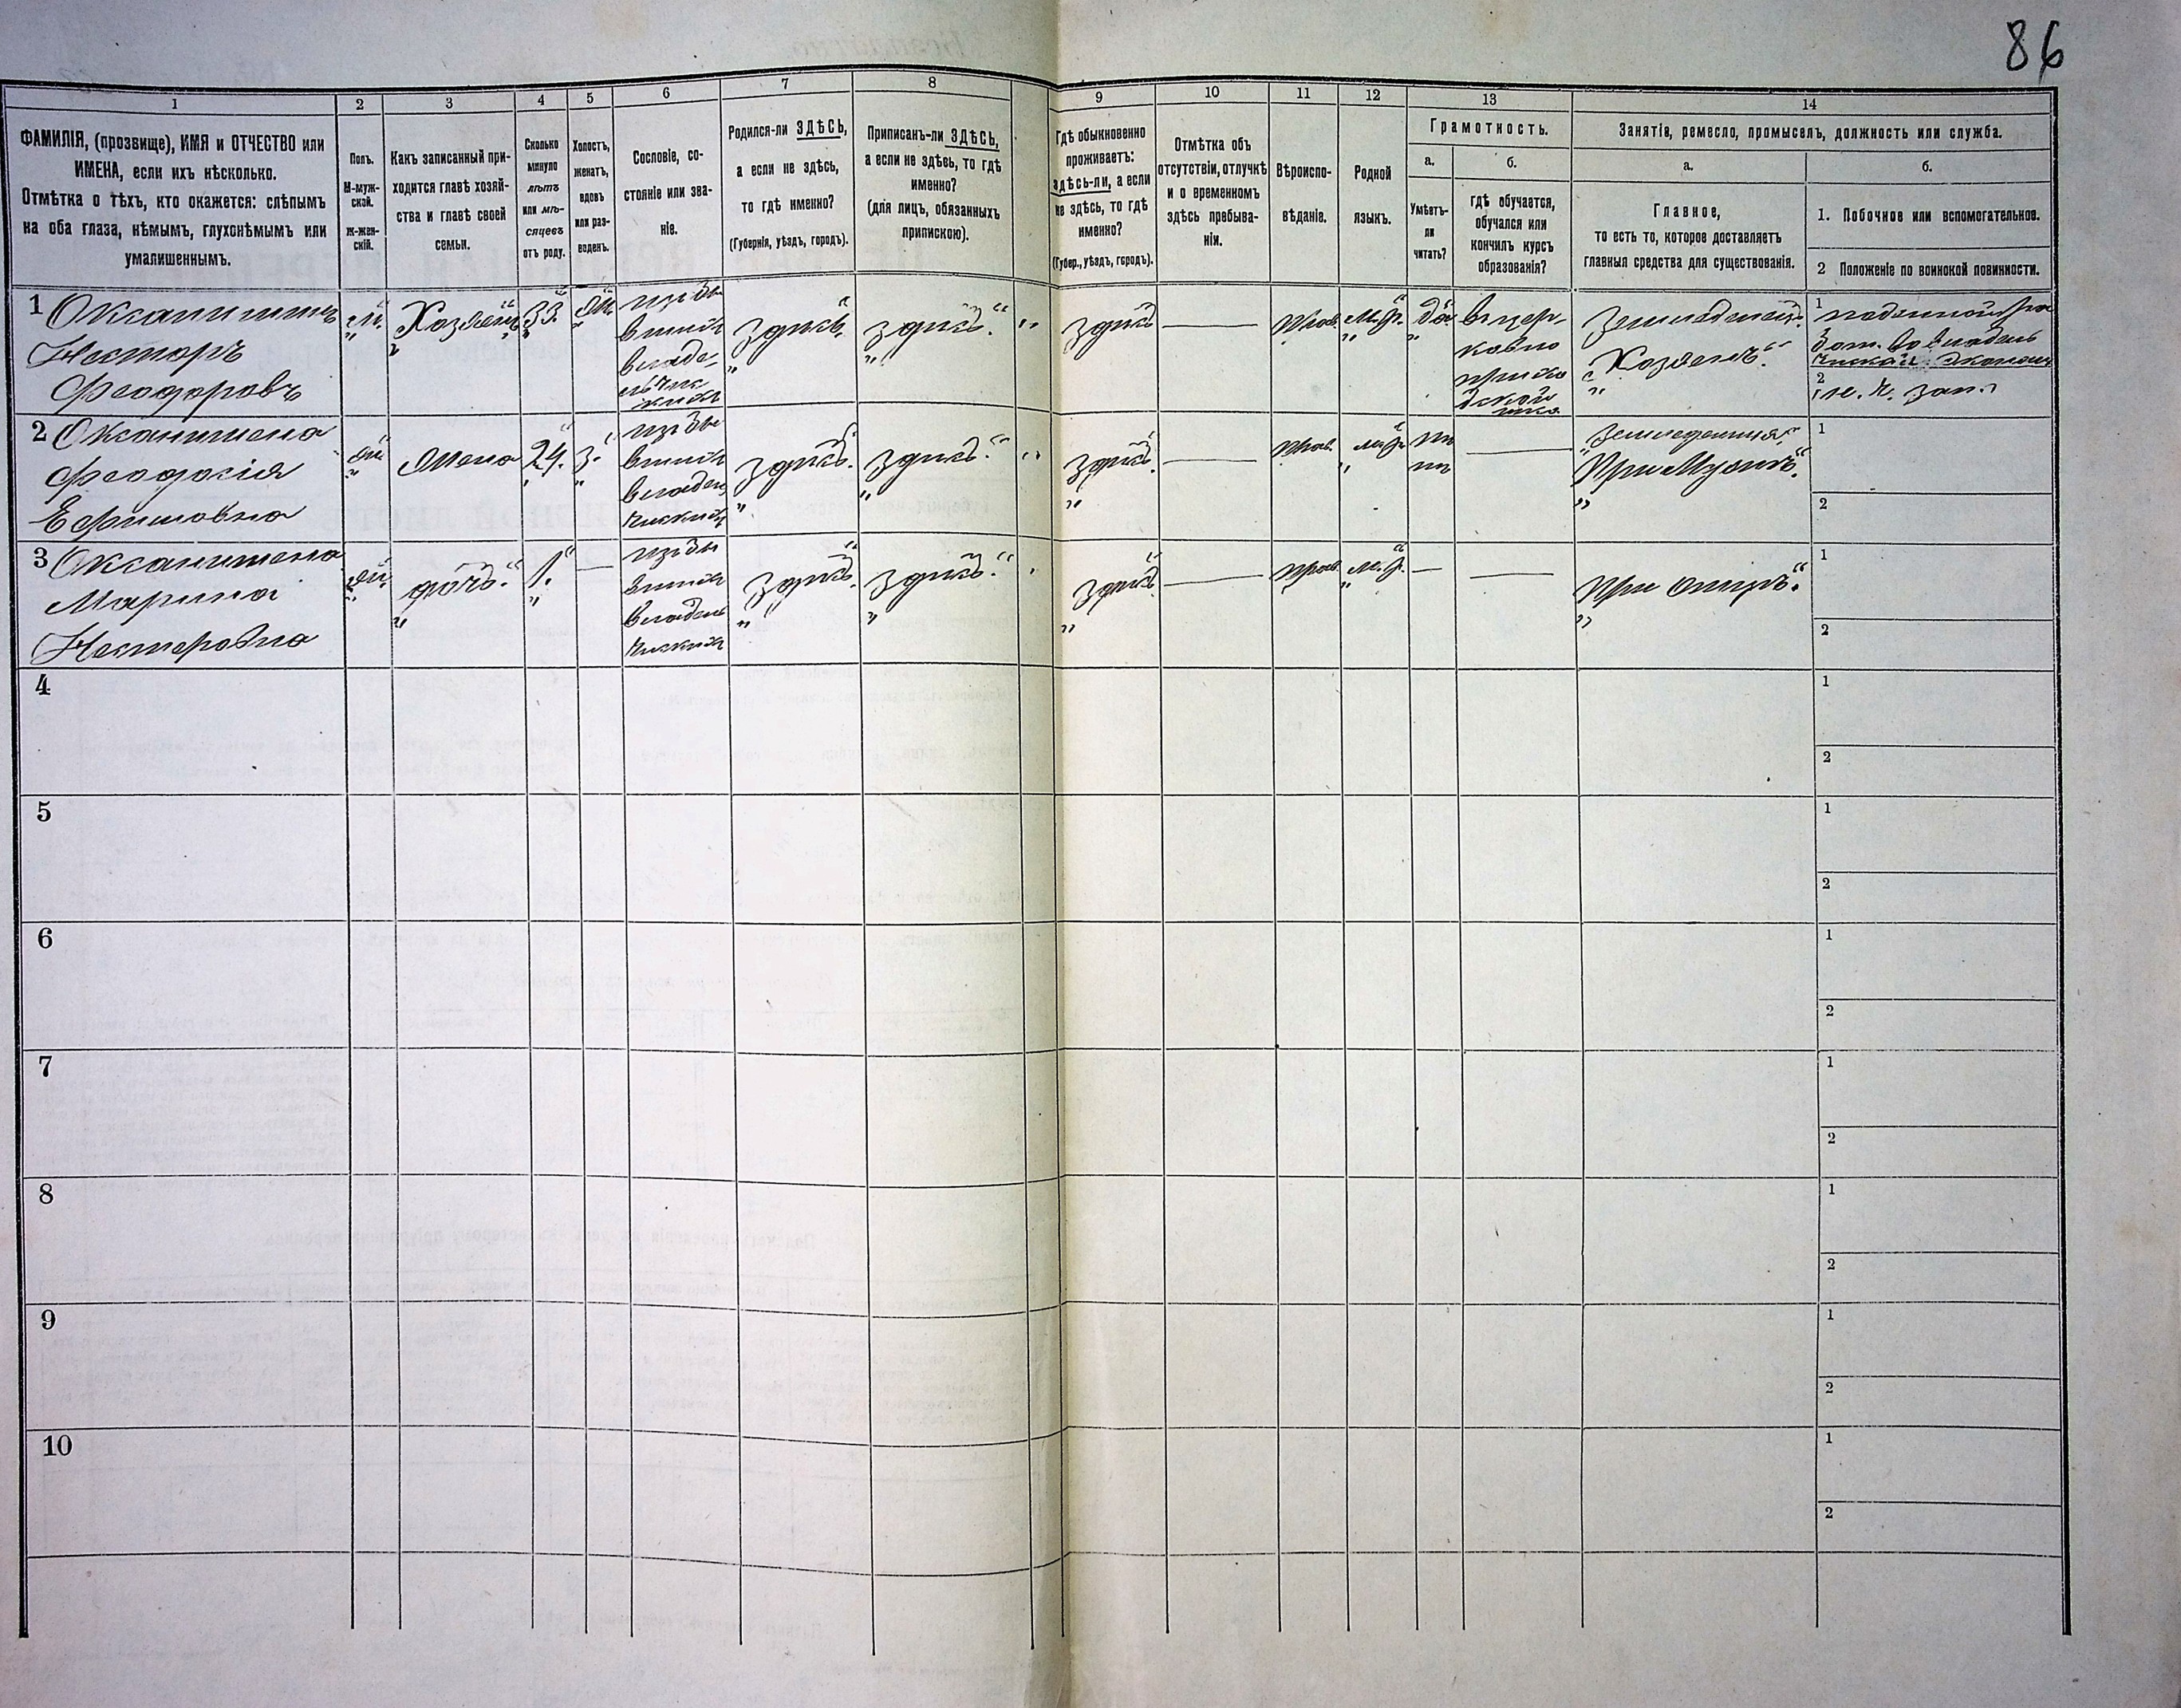 86
1
ФАМИЛІЯ, (прозвище), ИМЯ и ОТЧЕСТВО или
ИМЕНА, если ихъ нѣсколько.
Отмѣтка о тѣхъ, кто окажется: слѣпымъ
на оба глаза, нѣмымъ, глухонѣмымъ или
умалишеннымъ.
2
Полъ.
М-муж-
ской.
ж-жен-
скій.
3
Какъ записанный при-
ходится главѣ хозяй-
ства и главѣ своей
семьи.
4
Сколько
минуло
лѣтъ
или мѣ-
сяцевъ
отъ роду.
5
Холостъ,
женатъ,
вдовъ
или раз-
веденъ.
6
Сословіе, со-
стояніе или зва-
ніе.
7
Родился-ли ЗДѢСЬ,
а если не здѣсь,
то гдѣ именно?
(Губернія, уѣздъ, городъ).
8
Приписанъ-ли ЗДѢСЬ,
а если не здѣсь, то гдѣ
именно?
(для лицъ, обязанныхъ
припискою).
9
Гдѣ обыкновенно
проживаетъ:
здѣсь-ли, а если
не здѣсь, то гдѣ
именно?
(Губер., уѣздъ, городъ).
10
Отмѣтка объ
отсутствіи, отлучкѣ
и о временномъ
здѣсь пребыва-
ніи.
11
Вѣроиспо-
вѣданіе.
12
Родной
языкъ.
13
Грамотность.
а.
Умѣетъ-
ли
читать?
б.
гдѣ обучается,
обучался или
кончилъ курсъ
образованія?
14
Занятія, ремесло, промыселъ, должность или служба.
а.
Главное,
то есть то, которое доставляетъ
главныя средства для существованія.
б.
1. Побочное или вспомогательное.
2 Положеніе по воинской повинности.
1
Несторъ
Феодоровъ
м.
Хозяинъ
33.
ж.
изъ бы
вшихъ
владе-
льчес
кихъ
здѣсь
здѣсь.
здѣсь
прав.
м.р.
да
вцер-
ковно
прихо
дской
Земледѣлецъ
Хозяинъ
1
2
2
Феодосія
Ефимовна
ж
Жена
24.
з.
изъ бы
вшихъ
владель
ческихъ
здѣсь.
здѣсь.
здѣсь.
прав.
м.р.
нѣ
тъ
При Мужѣ.
1
2
3
Марина
Нестеровна
ж.
дочь.
1.
изъ бы
вшихъ
владель
ческихъ
здѣсь.
здѣсь.
здѣсь
прав.
м.р.
При Отцѣ.
1
2
4
1
2
5
1
2
6
1
2
7
1
2
8
1
2
9
1
2
10
1
2